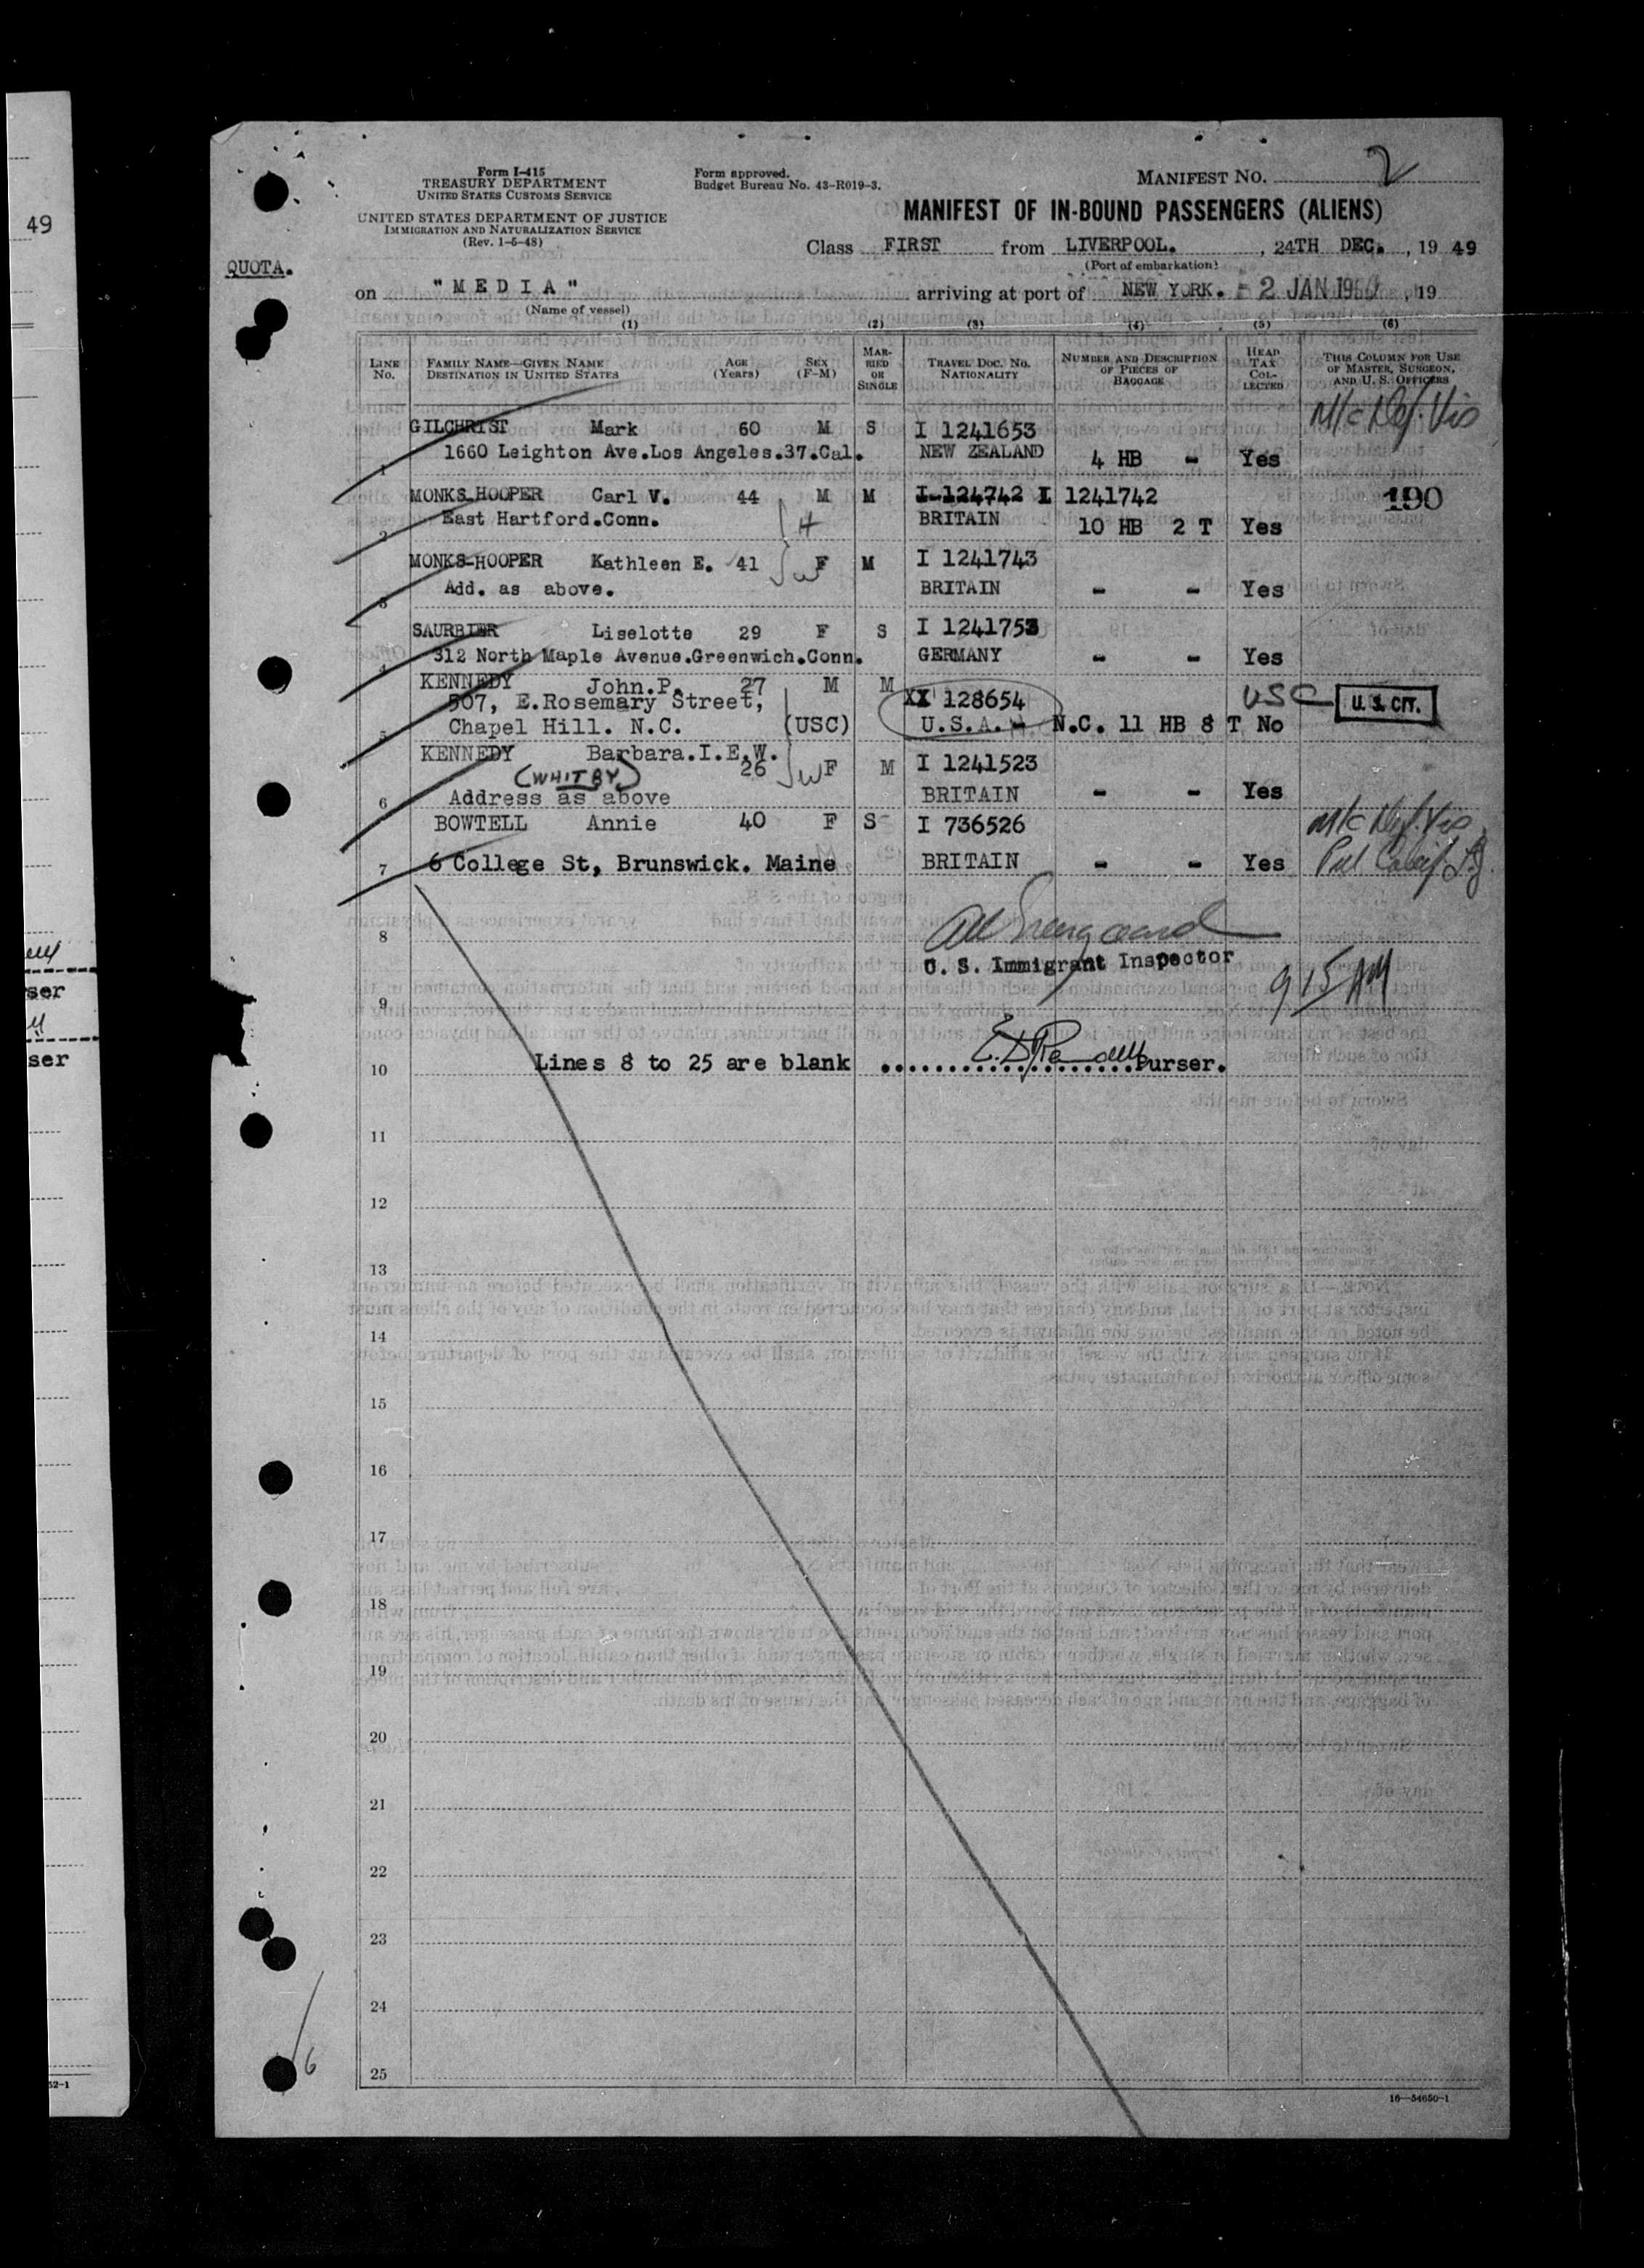 49
Form I-415
TREASURY DEPARTMENT
UNITED STATES CUSTOMS SERVICE
UNITED STATES DEPARTMENT OF JUSTICE
IMMIGRATION AND NATURALIZATION SERVICE
(Rev. 1-5-48)
Form approved.
Budget Bureau No. 43-R019-3.
MANIFEST NO. 2
MANIFEST OF IN-BOUND PASSENGERS (ALIENS)
Class FIRST from LIVERPOOL. , 24TH DEC. , 19 49
(Port of embarkation)
QUOTA.
on "MEDIA" arriving at port of NEW YORK. - 2 JAN 1950 , 19
(Name of vessel)
(1) (2) (3) (4) (5) (6)
LINE NO. FAMILY NAME—GIVEN NAME DESTINATION IN UNITED STATES AGE (Years) SEX (F-M) MARRIED OR SINGLE TRAVEL DOC. NO. NATIONALITY NUMBER AND DESCRIPTION OF PIECES OF BAGGAGE HEAD TAX COLLECTED THIS COLUMN FOR USE OF MASTER, SURGEON, AND U. S. OFFICERS
GILCHRIST Mark 60 M S I 1241653 M/c Def. Vis
1 1660 Leighton Ave.Los Angeles.37.Cal. NEW ZEALAND 4 HB - Yes
MONKS-HOOPER Carl V. 44 M M I-124742 I 1241742 190
2 East Hartford.Conn. H BRITAIN 10 HB 2 T Yes
MONKS-HOOPER Kathleen E. 41 W F M I 1241743
3 Add. as above. BRITAIN - - Yes
SAURBIER Liselotte 29 F S I 1241753
4 312 North Maple Avenue.Greenwich.Conn. GERMANY - - Yes
KENNEDY John.P. 27 M M XX 128654 USC U. S. CIT.
507, E.Rosemary Street,
5 Chapel Hill. N.C. (USC) U.S.A. - N.C. 11 HB 8 T No
KENNEDY Barbara.I.E.W. 26 W F M I 1241523
(WHITBY)
6 Address as above BRITAIN - - Yes
BOWTELL Annie 40 F S I 736526 M/c Def. Vis
7 6 College St, Brunswick. Maine BRITAIN - - Yes
8
U. S. Immigrant Inspector
9 15 AM
9
10 Lines 8 to 25 are blank ................... Purser.
11
12
13
14
15
16
17
18
19
20
21
22
23
24
25
6
16—54650-1
ser
ser
52-1